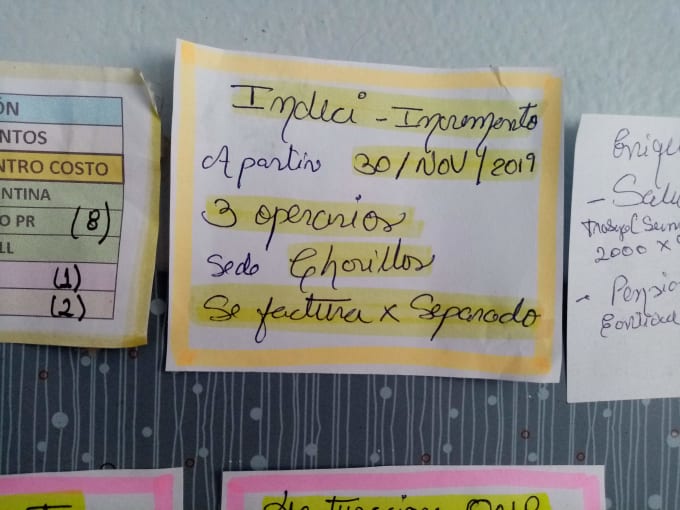 ÓN
ENTOS
NTRO COSTO
ENTINA
O PR (8)
LL
(1)
(2)
Indeci - Incremento
A partir 30/NOV/2019
3 operarios
Sede Chorillos
Se factura x Separado
- Salu
2000 x
- Pension